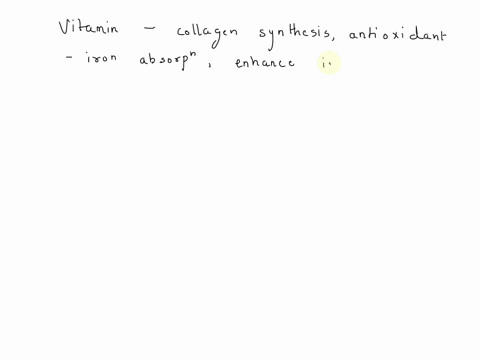 Vitamin - collagen synthesis, antioxidant
- iron absorpⁿ, enhance i